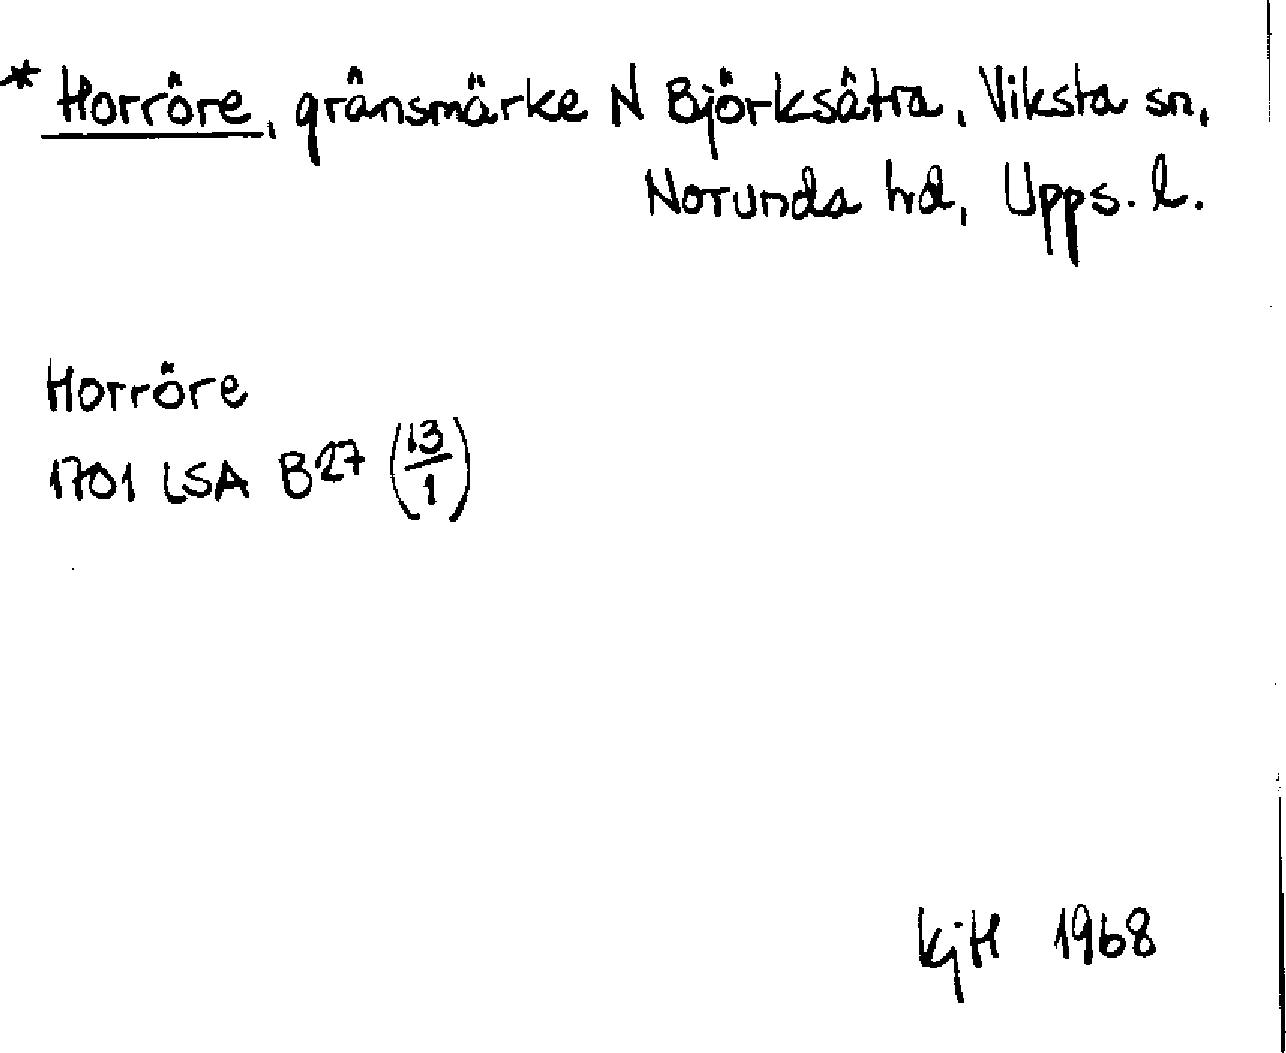 * Horröre, gränsmärke N Björksätra, Viksta sn,
Norunda hd, Upps. l.
Horröre
1701 LSA B27 (13/1)
KjH 1968